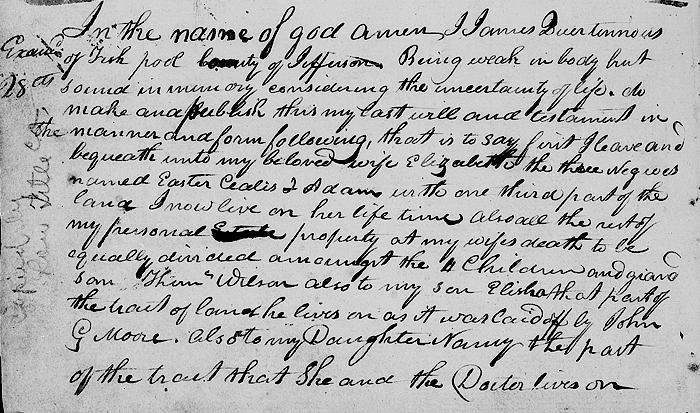 In the name of god amen, I James Duertinnous
of Fish pool County of Jefferson. Being weak in body but
sound in memory considering the uncertainty of life. do
make and publish this my last will and testament in
the manner and form following, that is to say first I leave and
bequeath unto my beloved wife Elizabeth the three Negroes
named Easter Cealis & Adam with one third part of the
land I now live on her life time also all the rest of
my personal Estate property at my wifes death to be
equally divided amoungst the 4 Children and grand
son Wilson also to my son Elisha that part of
the tract of land he lives on as it was laid off by John
G Moore. Also to my Daughter Nancy the part
of the tract that She and the Docter lives on
28 cts